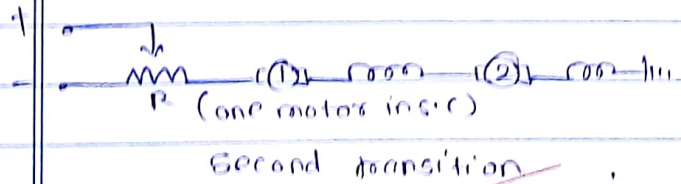 (1) (2)
R (one motor in s.c)
Second transition